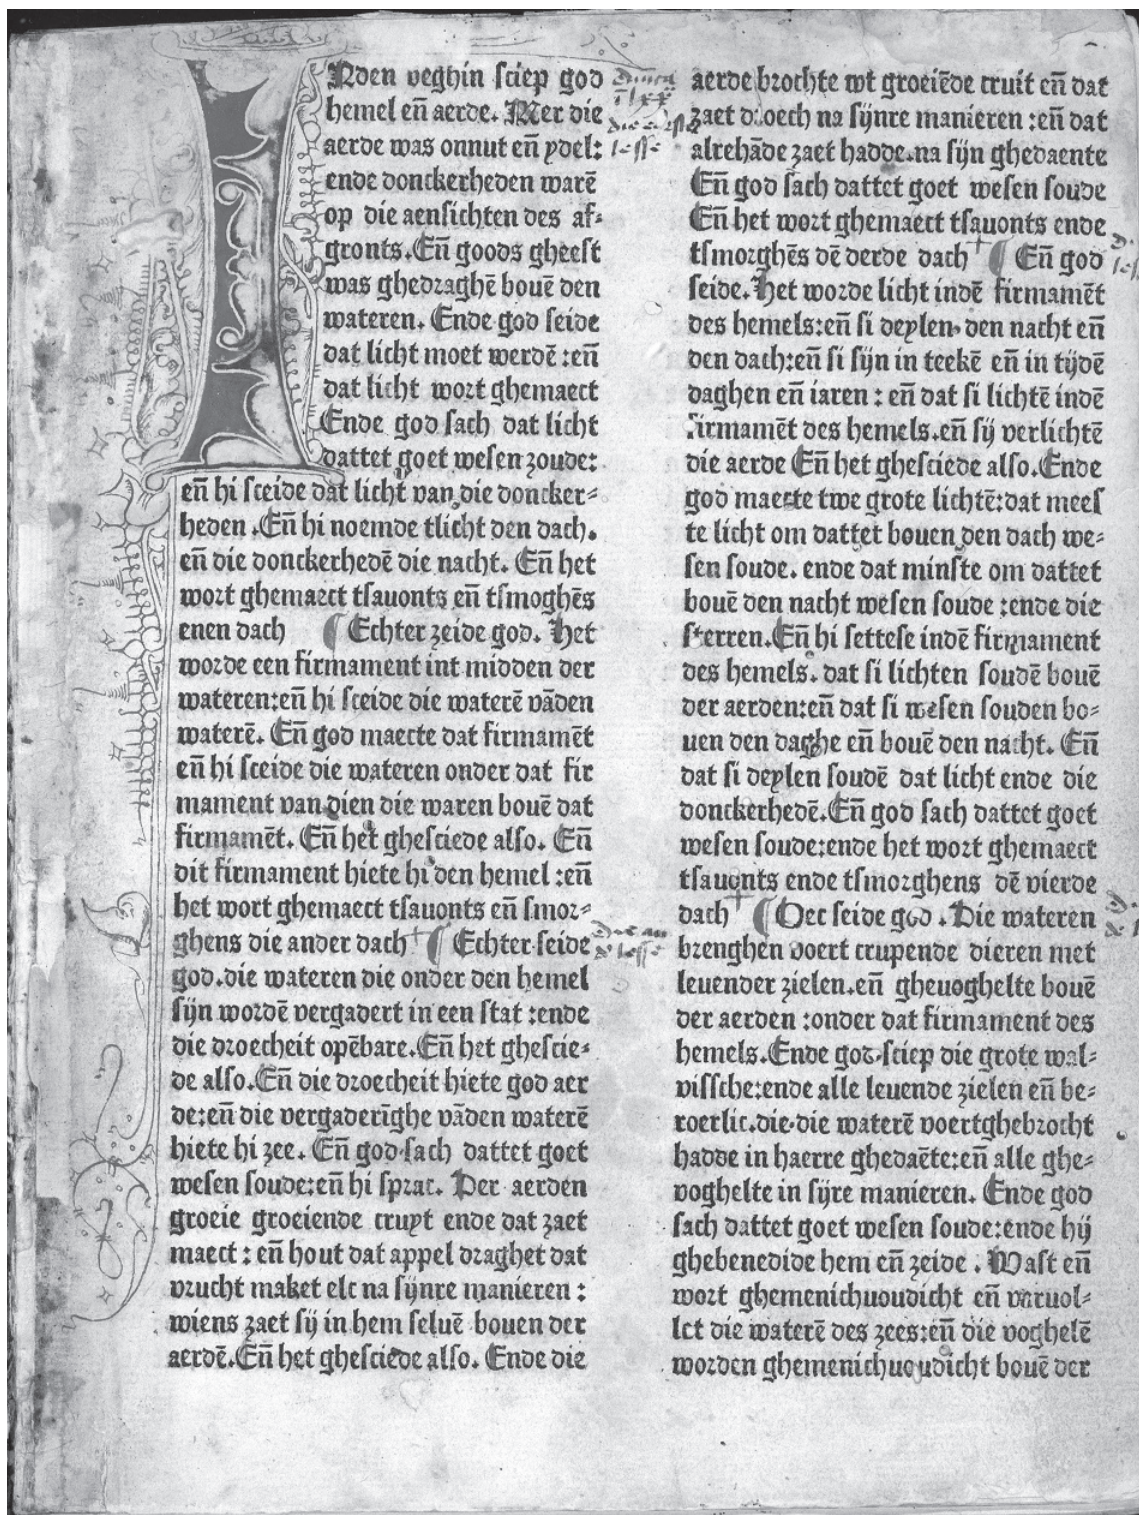 INden beghin sciep god
hemel eñ aerde. Mer die
aerde was onnut eñ ydel:
ende donckerheden warē
op die aensichten des af⸗
gronts. Eñ goods gheest
was ghedraghē bouē den
wateren. Ende god seide
dat licht moet werdē :eñ
dat licht wort ghemaect
Ende god sach dat licht
dattet goet wesen zoude:
eñ hi sceide dat licht van die doncker⸗
heden .Eñ hi noemde tlicht den dach.
eñ die donckerhedē die nacht. Eñ het
wort ghemaect tsauonts eñ tsmoghēs
enen dach ¶ Echter zeide god. Het
worde een firmament int midden der
wateren:eñ hi sceide die waterē vāden
waterē. Eñ god maecte dat firmamēt
eñ hi sceide die wateren onder dat fir
mament van dien die waren bouē dat
firmamēt. Eñ het ghesciede also. Eñ
dit firmament hiete hi den hemel :eñ
het wort ghemaect tsauonts eñ smor⸗
ghens die ander dach ¶ Echter seide
god.die wateren die onder den hemel
sijn wordē vergadert in een stat :ende
die droecheit opēbare.Eñ het ghescie⸗
de also.Eñ die droecheit hiete god aer
de:eñ die vergaderīghe vāden waterē
hiete hi zee. Eñ god sach dattet goet
wesen soude:eñ hi sprac. Der aerden
groeie groeiende cruyt ende dat zaet
maect : eñ hout dat appel draghet dat
vrucht maket elc na sijnre manieren :
wiens zaet sij in hem seluē bouen der
aerdē.Eñ het ghesciede also. Ende die
aerde brochte wt groeiēde cruit eñ dat
zaet droech na sijnre manieren :eñ dat
alrehāde zaet hadde.na sijn ghedaente
Eñ god sach dattet goet wesen soude
Eñ het wort ghemaect tsauonts ende
tsmorghēs dē derde dach ¶ Eñ god
seide.Het worde licht indē firmamēt
des hemels:eñ si deylen den nacht eñ
den dach:eñ si sijn in teekē eñ in tijdē
daghen eñ iaren : eñ dat si lichtē indē
firmamēt des hemels.eñ sij verlichtē
die aerde Eñ het ghesciede also.Ende
god maecte twe grote lichtē:dat mees
te licht om dattet bouen den dach we⸗
sen soude. ende dat minste om dattet
bouē den nacht wesen soude :ende die
sterren.Eñ hi settese indē firmament
des hemels. dat si lichten soudē bouē
der aerden:eñ dat si wesen souden bo⸗
uen den daghe eñ bouē den nacht. Eñ
dat si deylen soudē dat licht ende die
donckerhedē.Eñ god sach dattet goet
wesen soude:ende het wort ghemaect
tsauonts ende tsmorghens dē vierde
dach ¶ Oec seide god . Die wateren
brenghen voert crupende dieren met
leuender zielen.eñ gheuoghelte bouē
der aerden :onder dat firmament des
hemels.Ende god sciep die grote wal⸗
vissche:ende alle leuende zielen eñ be⸗
roerlic.die die waterē voertghebrocht
hadde in haerre ghedaēte:eñ alle ghe⸗
voghelte in sijre manieren. Ende god
sach dattet goet wesen soude:ende hij
ghebenedide hem eñ zeide . Wast eñ
wort ghemenichuoudicht eñ veruol⸗
let die waterē des zees:eñ die voghelē
worden ghemenichuoudicht bouē der